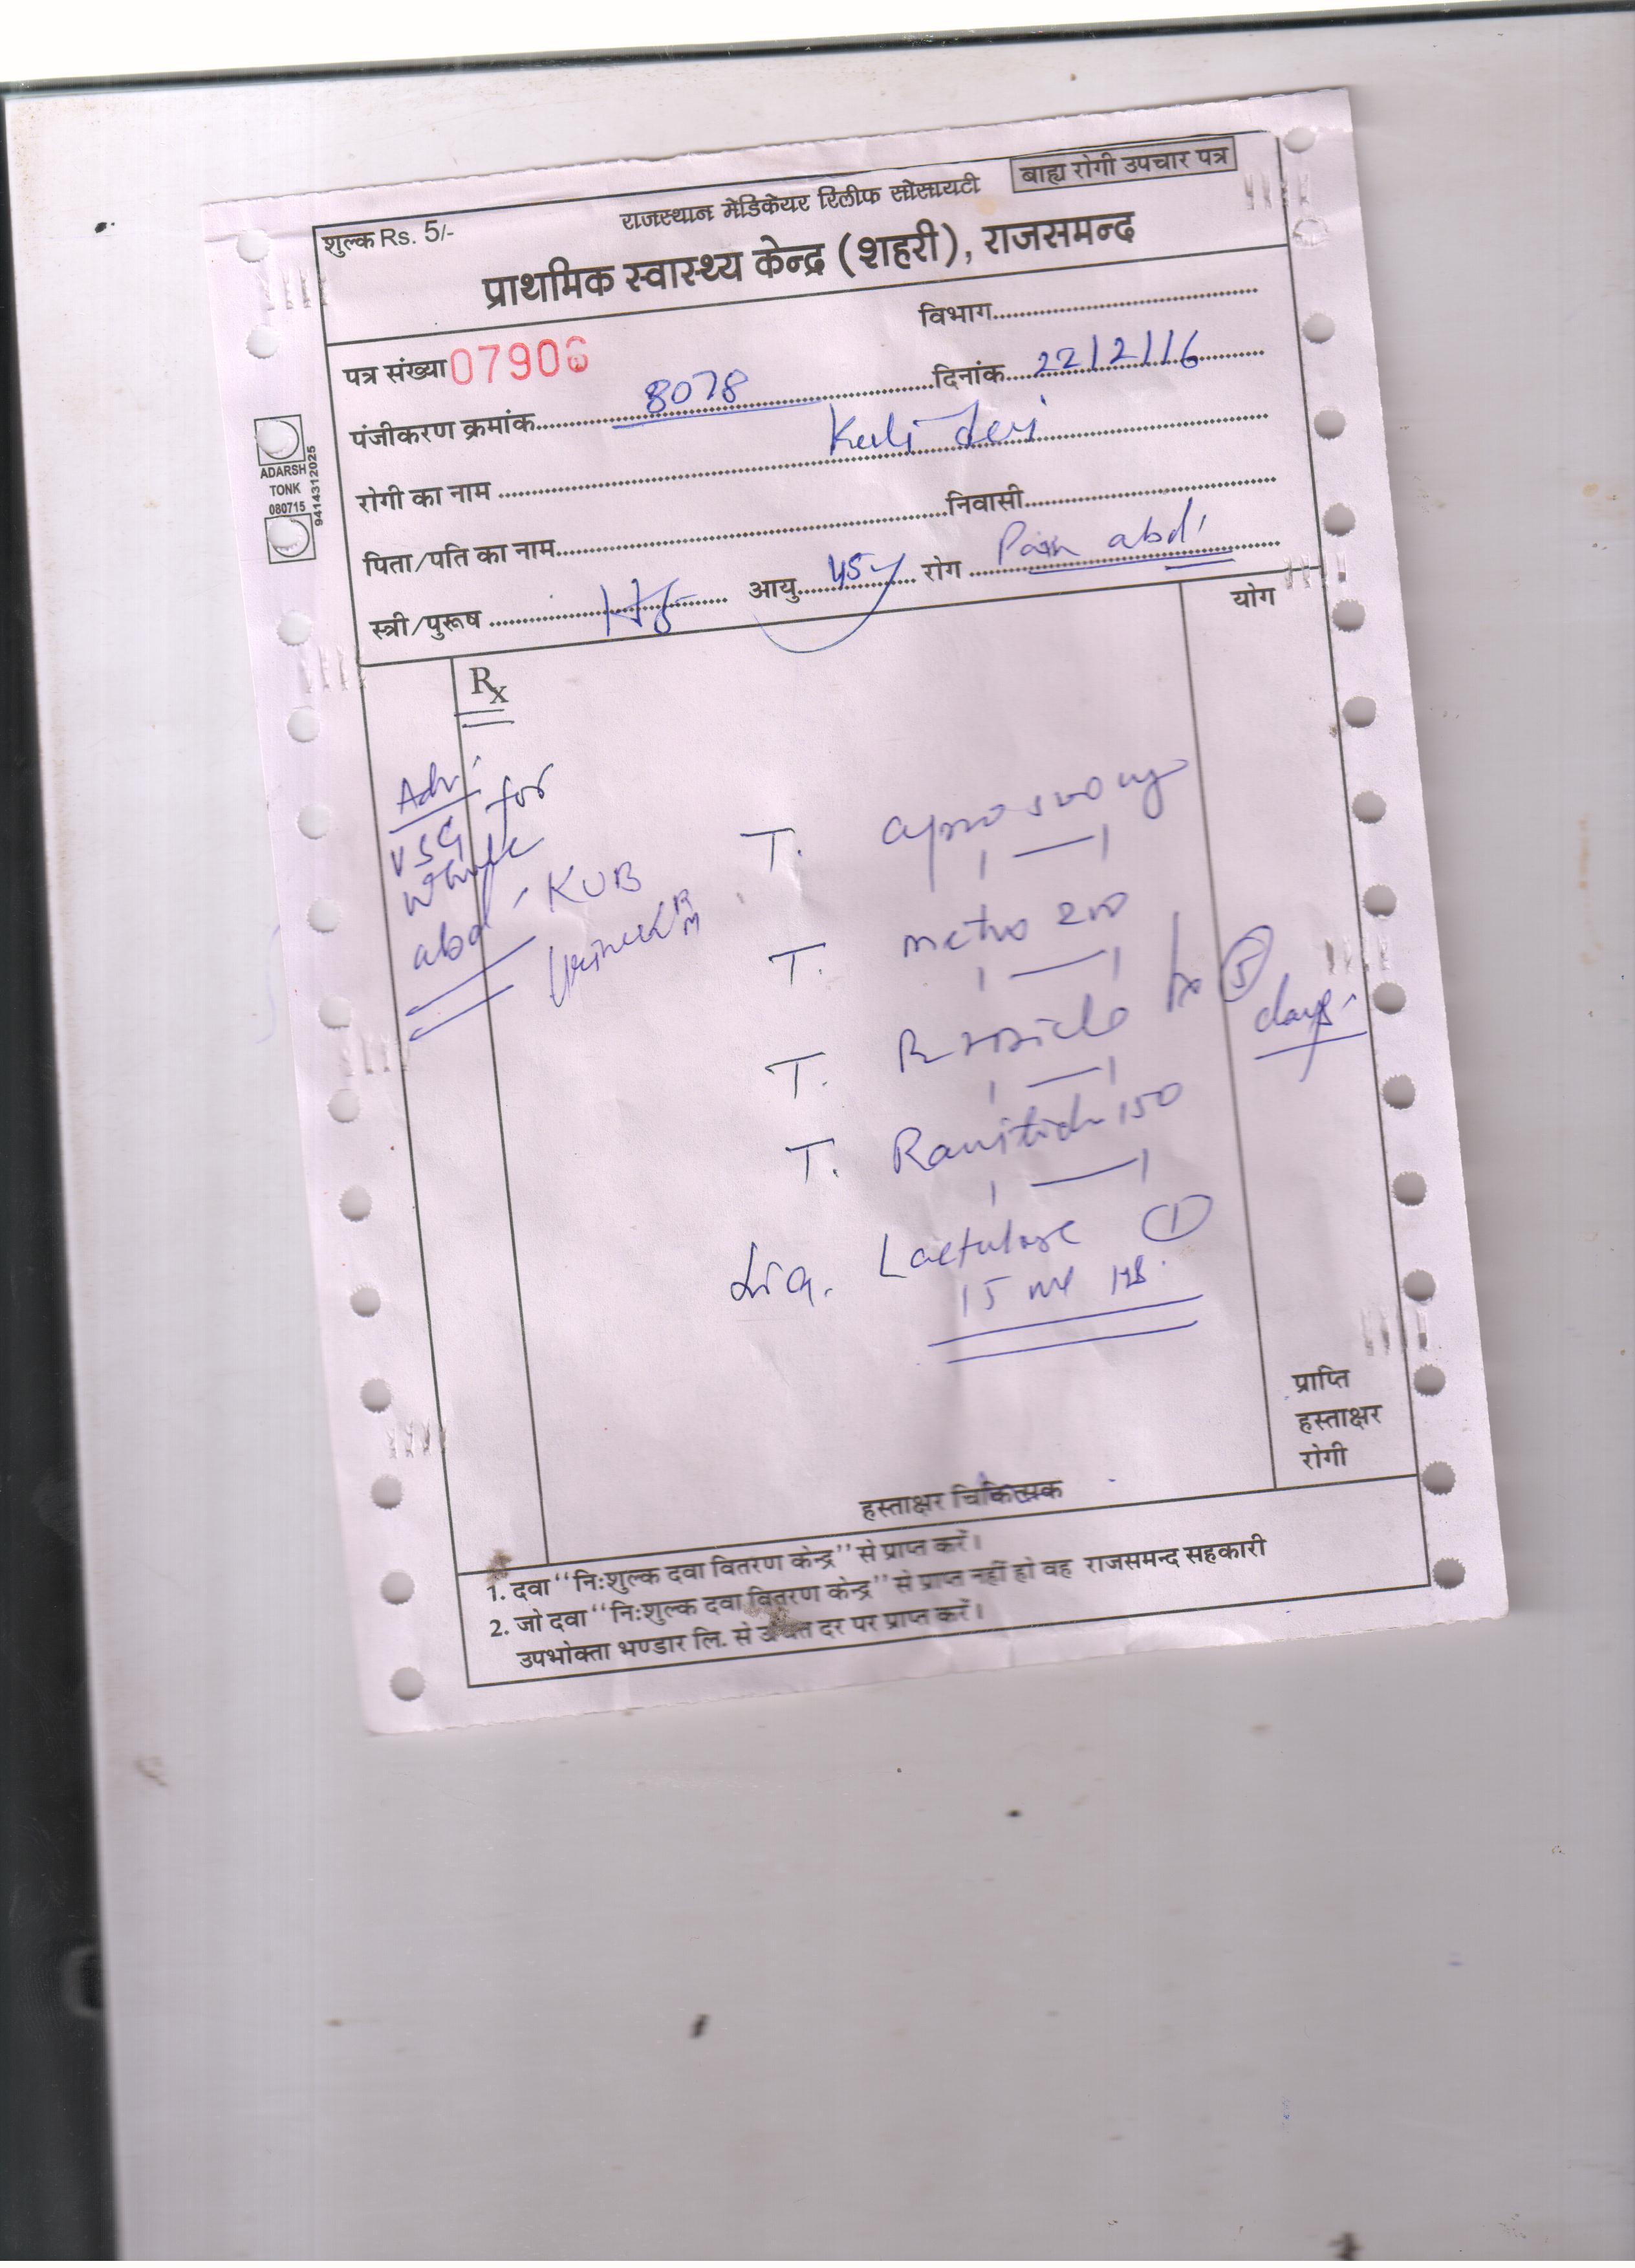 बाह्य रोगी उपचार पत्र
शुल्क Rs. 5/-
राजस्थान मेडिकेयर रिलीफ सोसायटी
प्राथमिक स्वास्थ्य केन्द्र (शहरी), राजसमन्द
विभाग
पत्र संख्या 07906
पंजीकरण क्रमांक 8078 दिनांक 22/2/16
रोगी का नाम Devi
पिता/पति का नाम निवासी
स्त्री/पुरूष आयु 45y रोग Pain abd.
ADARSH
TONK
080715
9414312025
Rx
योग
Adv.
USG for
Whole
abd - KUB
T. 500 mg
T. metro 200
T.
for 5
days.
T. Ranitidi 150
Liq. Lactulose 1
15 ml HS.
प्राप्ति
हस्ताक्षर
रोगी
हस्ताक्षर चिकित्सक
1. दवा "निःशुल्क दवा वितरण केन्द्र" से प्राप्त करें।
2. जो दवा "निःशुल्क दवा वितरण केन्द्र" से प्राप्त नहीं हो वह राजसमन्द सहकारी
उपभोक्ता भण्डार लि. से उचित दर पर प्राप्त करें।